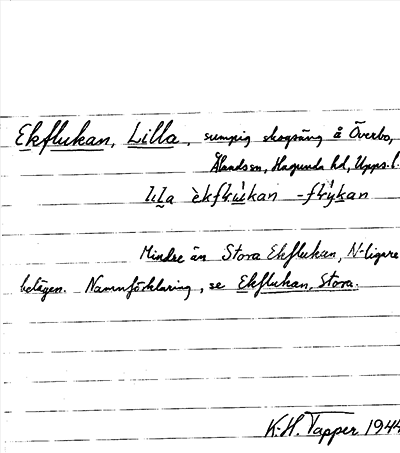 Ekflukan, Lilla, sumpig skogsäng å Överbo,
Ålands sn, Hagunda hd, Upps. l.
Mindre än Stora Ekflukan, N-ligare
belägen. Namnförklaring, se Ekflukan, Stora.
K-H. Tapper 1944